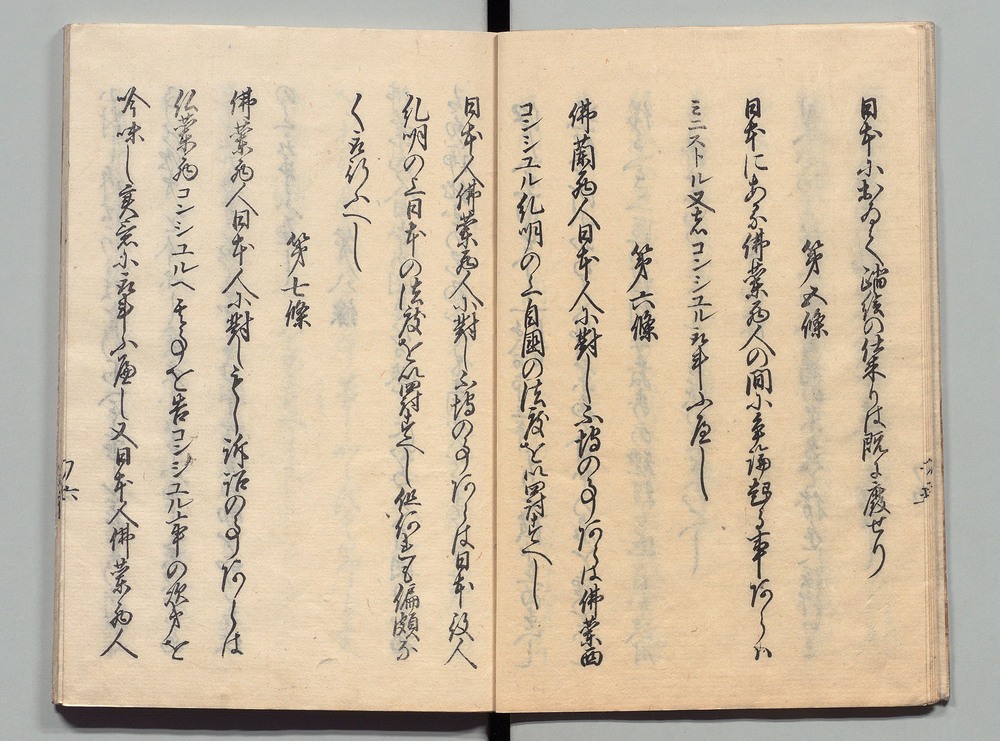 日本におゐて踏絵の仕来りは既に廃せり
第五條
日本にある佛蘭西人の間に争論起る事あらハ
ミニストル又はコンシユル取扱ふ應し
第六條
佛蘭西人日本人に對し不埒の事あらは佛蘭西
コンシユル糺明の上自國の法度を以罰すへし
日本人佛蘭西人に對し不埒の事あらは日本役人
糺明の上日本の法度を以罰すへし但何れも偏頗な
く取行ふへし
第七條
佛蘭西人日本人に對しもし訴訟の事あらは
仏蘭西コンシユルへ其事を告コンシユル事の次第を
吟味し実意に取扱ふ應し又日本人佛蘭西人